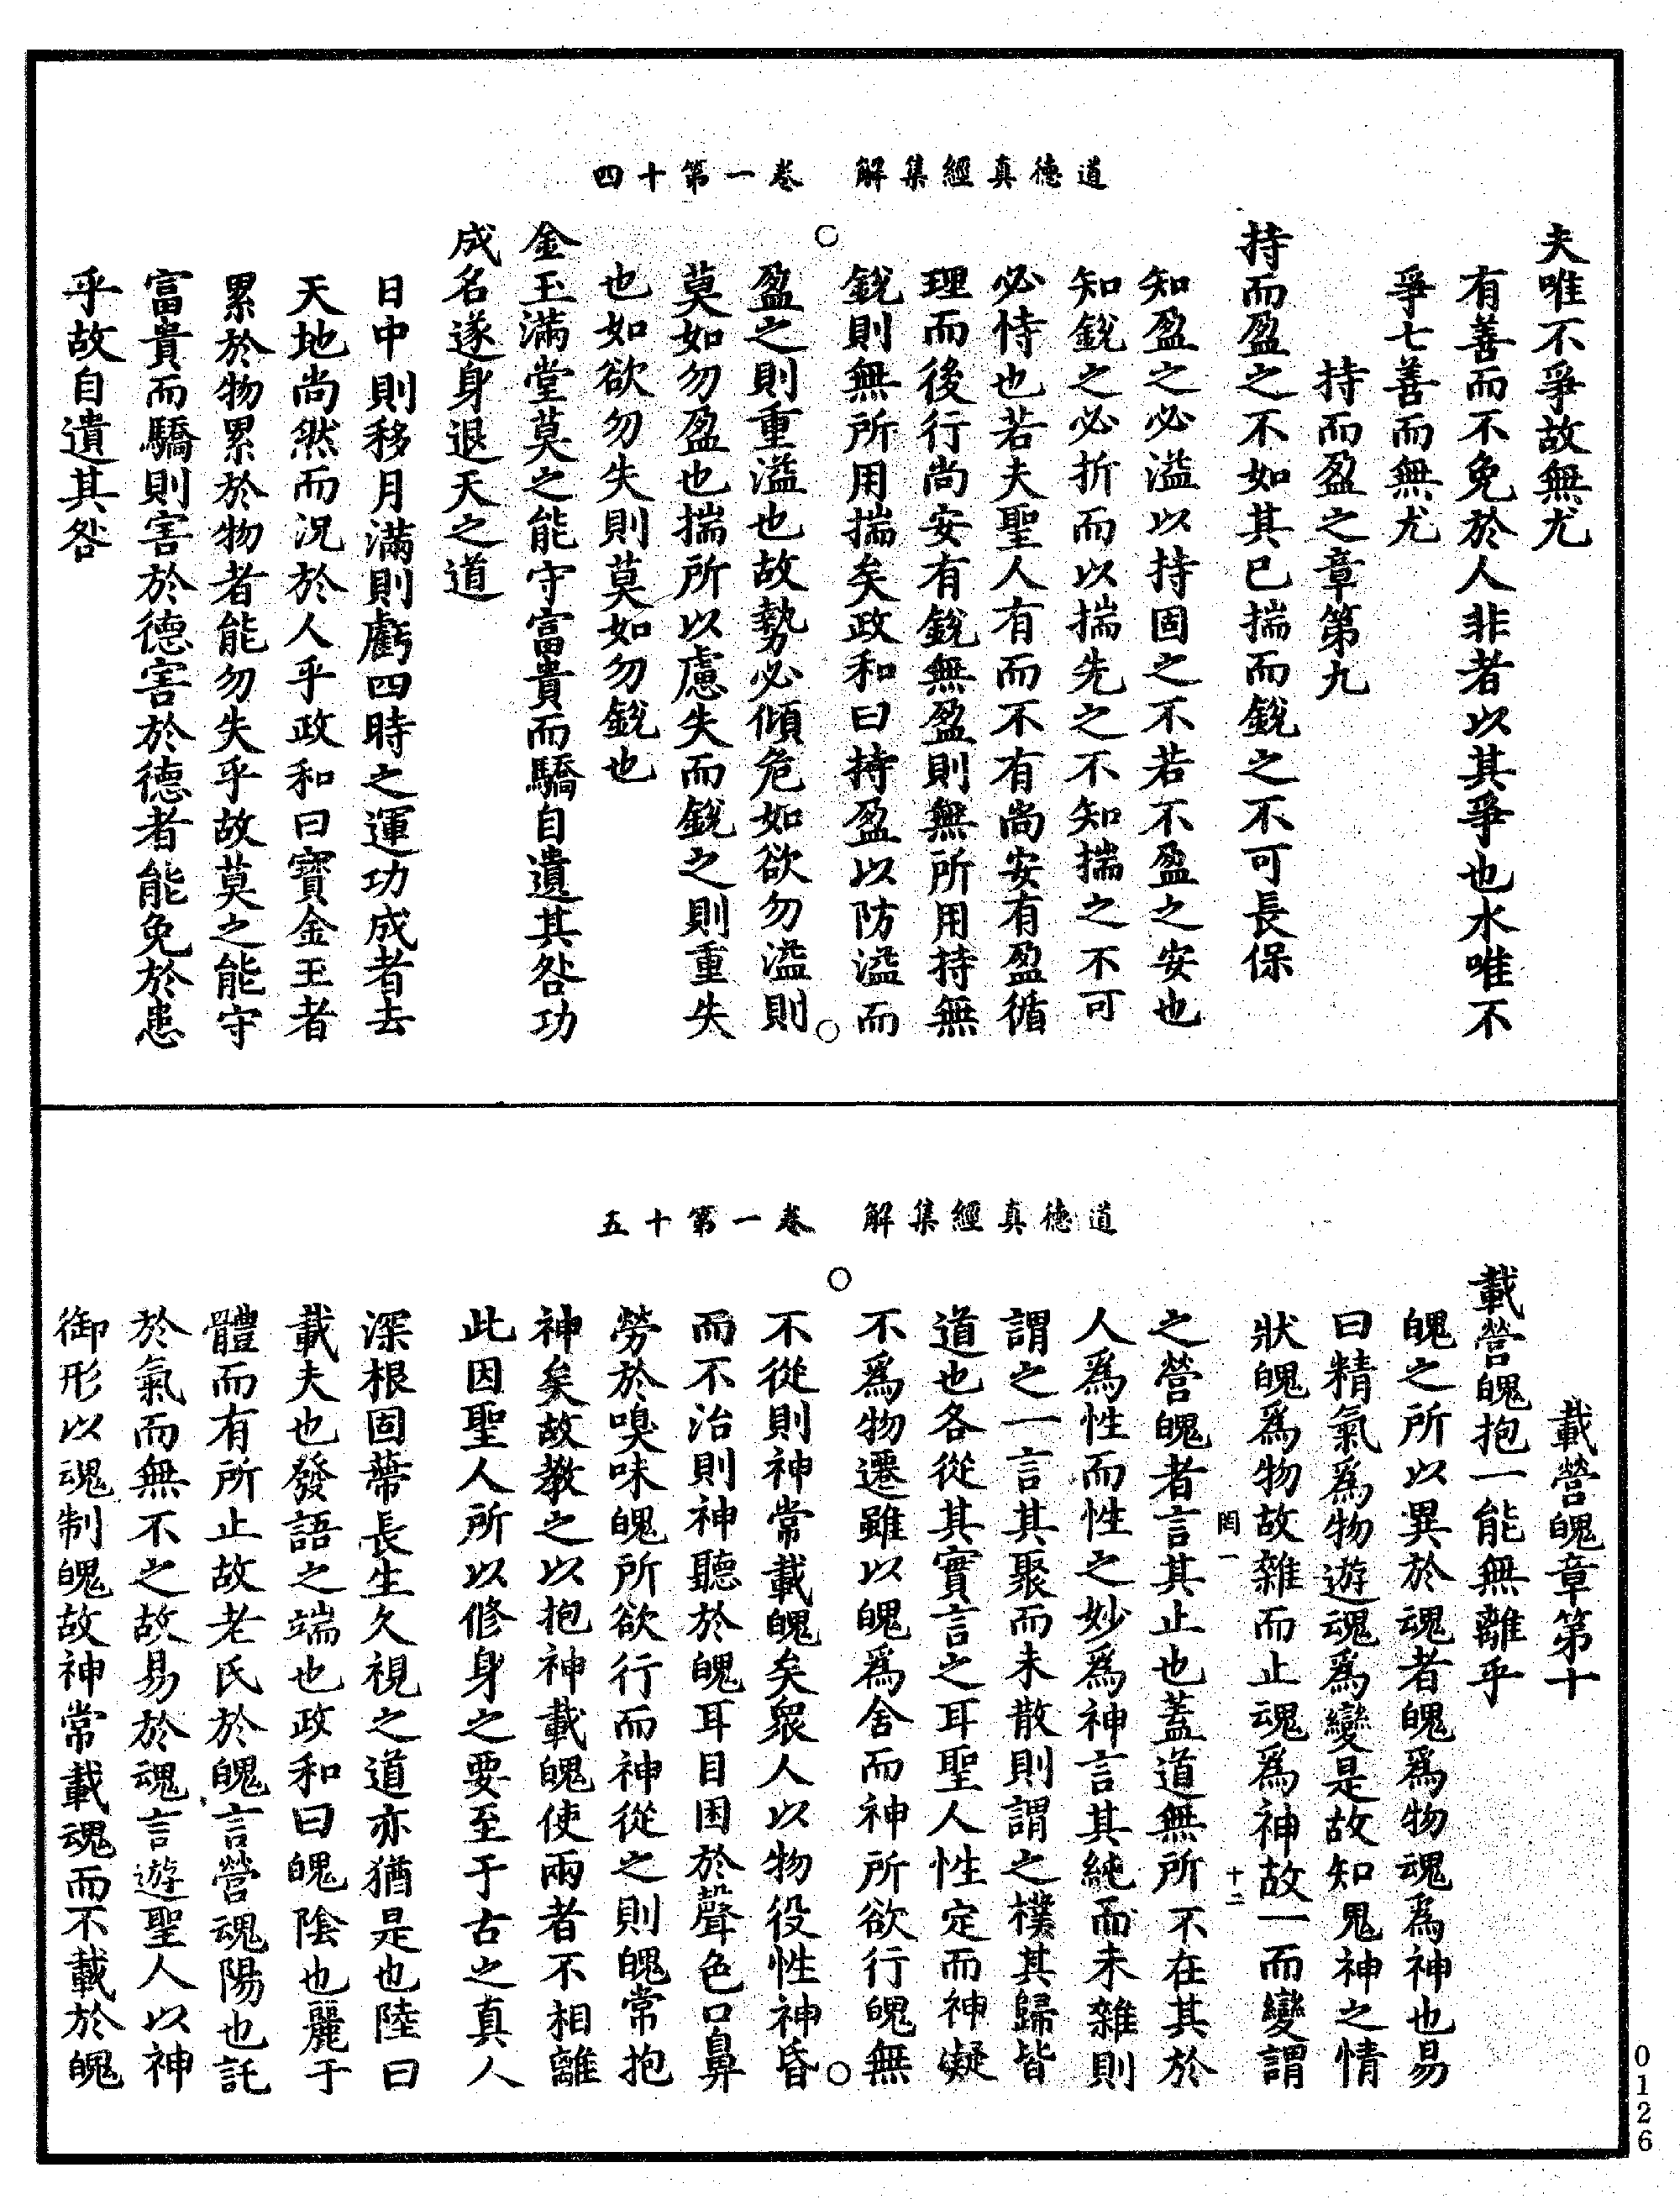 道德真經集解　卷一第十四
夫唯不爭故無尤
有善而不免於人非者以其爭也水唯不
爭七善而無尤
持而盈之章第九
持而盈之不如其已揣而銳之不可長保
知盈之必溢以持固之不若不盈之安也
知銳之必折而以揣先之不知揣之不可
必恃也若夫聖人有而不有尚安有盈循
理而後行尚安有銳無盈則無所用持無
銳則無所用揣矣政和曰持盈以防溢而
盈之則重溢也故勢必傾危如欲勿溢則
莫如勿盈也揣所以慮失而銳之則重失
也如欲勿失則莫如勿銳也
金玉滿堂莫之能守富貴而驕自遺其咎功
成名遂身退天之道
日中則移月滿則虧四時之運功成者去
天地尚然而況於人乎政和曰寶金玉者
累於物累於物者能勿失乎故莫之能守
富貴而驕則害於德害於德者能免於患
乎故自遺其咎
道德真經集解　卷一第十五
載營魄章第十
載營魄抱一能無離乎
魄之所以異於魂者魄為物魂為神也易
曰精氣為物遊魂為變是故知鬼神之情
狀魄為物故雜而止魂為神故一而變謂
罔一　十二
之營魄者言其止也蓋道無所不在其於
人為性而性之妙為神言其純而未雜則
謂之一言其聚而未散則謂之樸其歸皆
道也各從其實言之耳聖人性定而神凝
不為物遷雖以魄為舍而神所欲行魄無
不從則神常載魄矣眾人以物役性神昏
而不治則神聽於魄耳目困於聲色口鼻
勞於嗅味魄所欲行而神從之則魄常抱
神矣故教之以抱神載魄使兩者不相離
此因聖人所以修身之要至于古之真人
深根固蔕長生久視之道亦猶是也陸曰
載夫也發語之端也政和曰魄陰也麗于
體而有所止故老氏於魄言營魂陽也託
於氣而無不之故易於魂言遊聖人以神
御形以魂制魄故神常載魂而不載於魄
0126